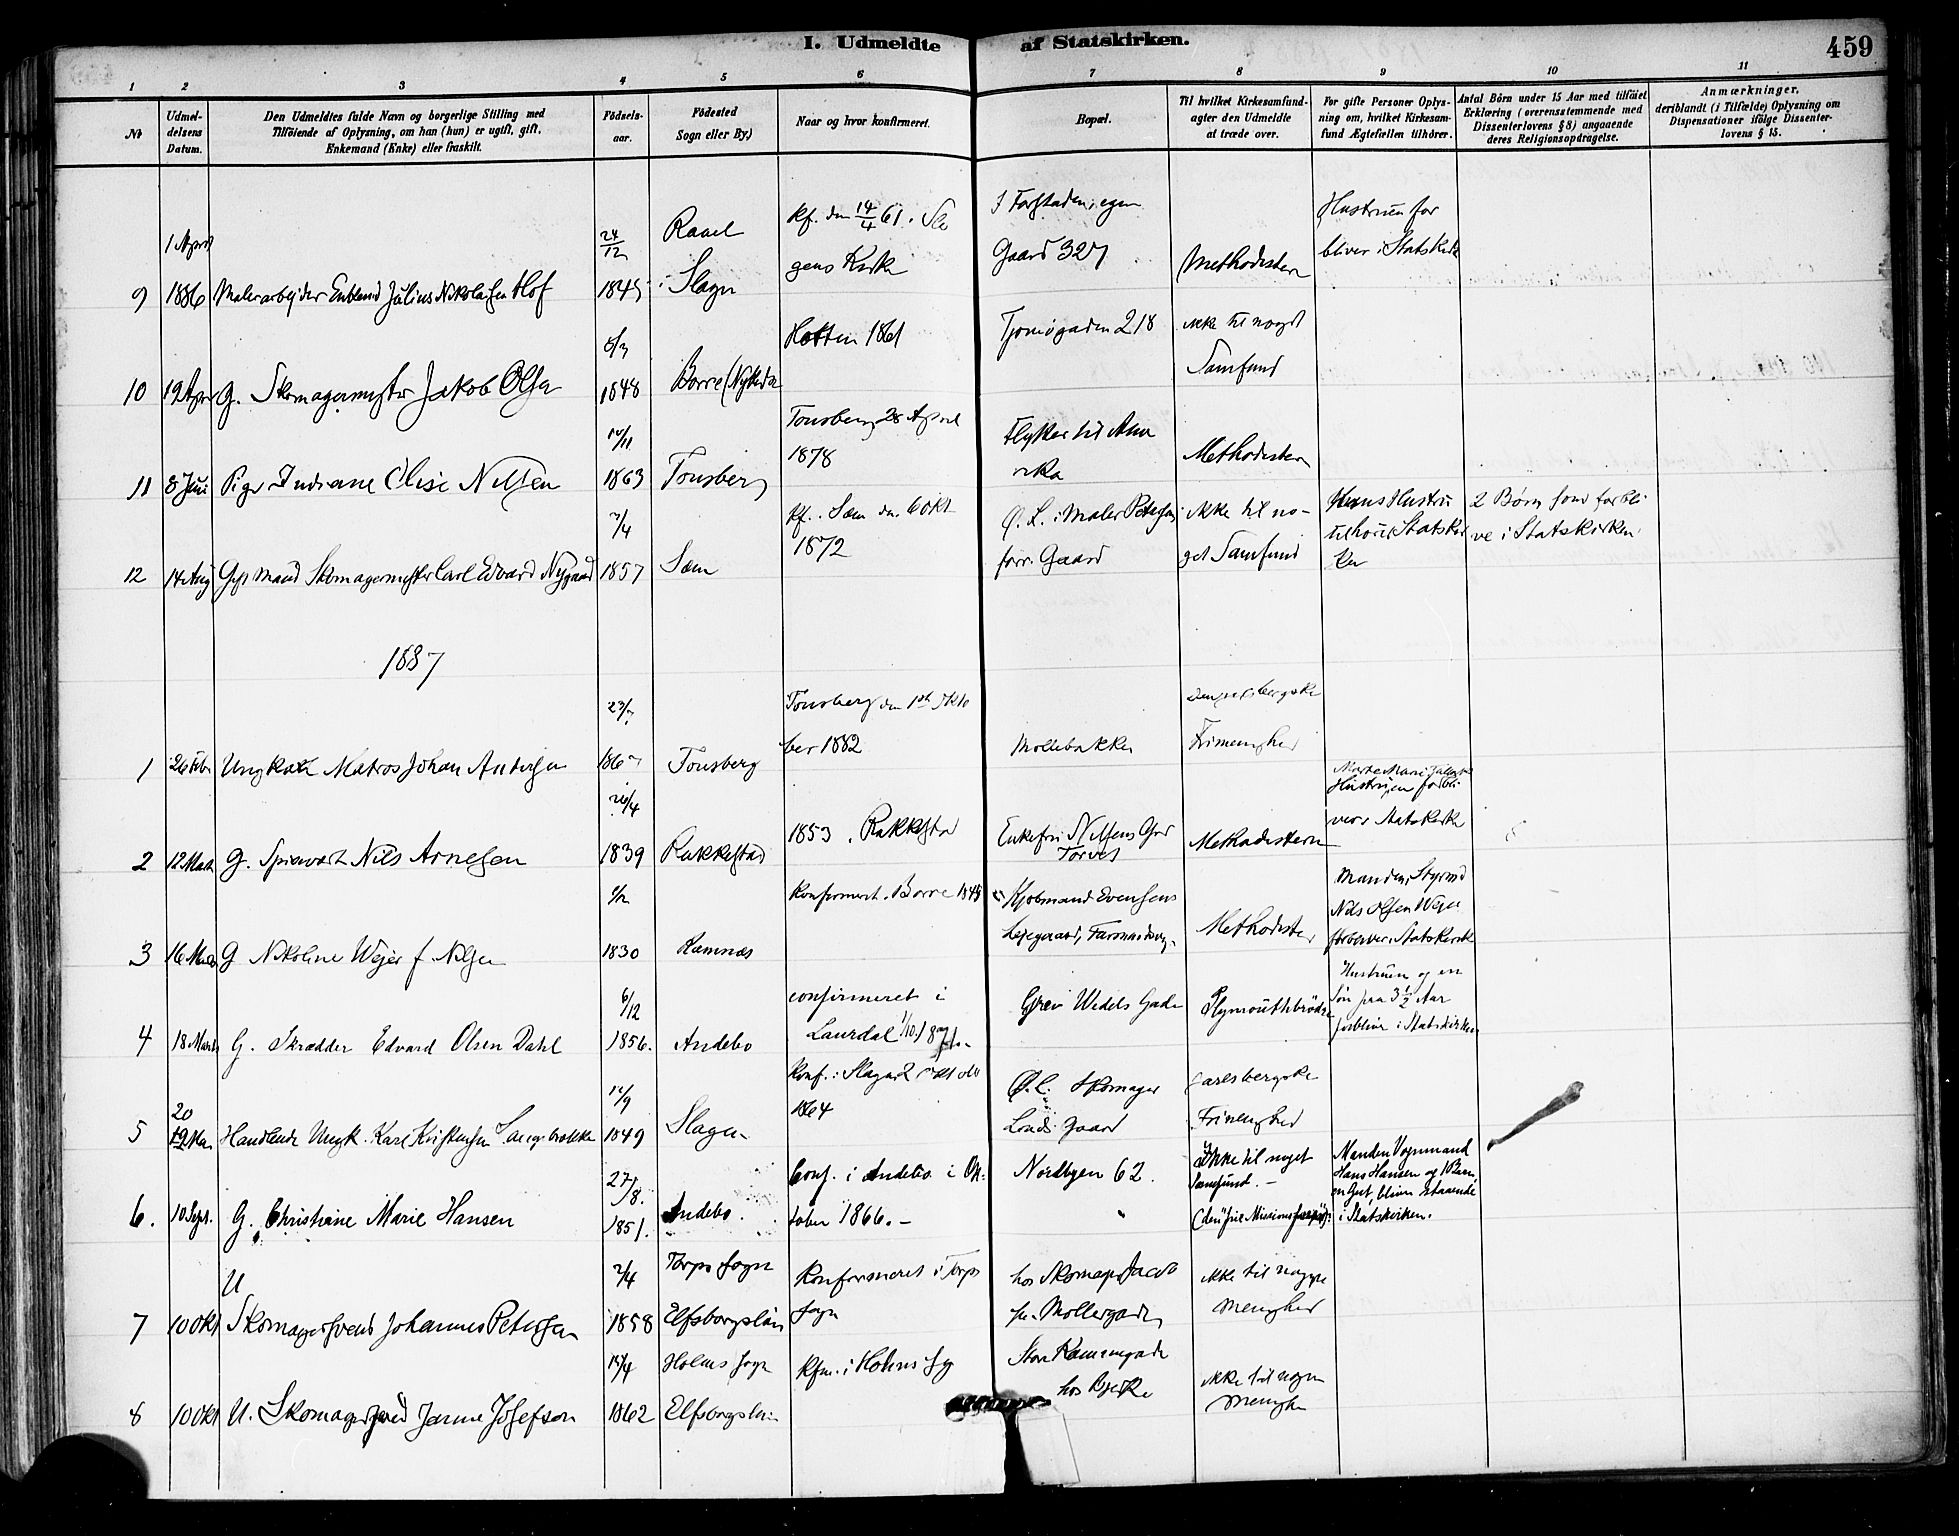 I. Udmeldte af Statskirken.
459
1 2 3 4 5 6 7 8 9 10 11
No
Udmeldelsens Datum.
Den Udmeldtes fulde Navn og borgerlige Stilling med
Tilføiende af Oplysning, om han (hun) er ugift, gift,
Enkemand (Enke) eller fraskilt.
Fødselsaar.
Fødested
Sogn eller By.)
Naar og hvor konfirmeret.
Bopæl.
Til hvilket Kirkesamfund-
agter den Udmeldte
at træde over.
For gifte Personer Oplys-
ning om, hvilket Kirkesam-
fund Ægtefællen tilhører.
Antal Børn under 15 Aar med tilføiet
Erklæring (overensstemmende med
Dissenterlovens § 8) angaaende
deres Religionsopdragelse.
Anmærkninger,
deriblandt (i Tilfælde) Oplysning om
Dispensationer ifølge Dissenter-
lovens § 15.
9
1 April
1886
Malerarbejder Julius Nikolaisen Hof
24/12
1845
i Slagn
Kf. den 14/4 61. Sla
gens Kirke
I Forstaden, egen
Gaard 327
Methodistern
Hustruen for
bliver i Statskirk
10
19 Apr
G. Skomagermester Jakob Olsen
8/3
1848
Borre
Hotten 1861
Tjømøgaden 218
ikke til noget
Samfund
11
8 Juni
Pige Indiane Elise Nilsen
1863
Tønsberg
Tønsberg 28 April
1878
Flytter til Ame
rika
Methodistern
12
14 Aug
Gift Mand Skomagermester Carl Edvard Nygaard
7/4
1857
Sæm
Kf. Sæm den 6 Okt
1872
Ø. L. i Maler Petersens
forr. Gaard
ikke til no-
get Samfund
Hans Hustru
tilhører Statskir
ken
2 Børn som forbli
ve i Statskirken
1887
1
26 Febr
Ungkarl Matros Johan Andersen
23/7
1867
Tønsberg
Tønsberg den 1ste Okto
ber 1882
Møllebakken
Frimenighed
2
12 Marts
G. Nils Arnesen
26/4
1839
Rakkestad
1853, Rakkestad
Enkefru Nilsens Grd
Torvet
Methodistern
Hustruen forbli
ver i Statskirke
3
16 Marts
G Nikoline Wejer f. Nilsen
1/2
1830
Ramnæs
konfirmert. Borre 1848
Kjøbmand Evensens
Lejegaard, Farmandsvej
Methodister
Manden, Styrmd
Nils Olsen Wejer
forbliver i Statskirk
4
18 Marts
G. Skrædder Edvard Olsen Dahl
6/12
1856.
Andebo
confirmeret i
Laurdal 1/10 1871.
Grev Wedels Gade
Plymouthbrødr
Hustruen og en
Søn paa 3½ Aar
forbliver i Statskirken
5
20
19 Ma
Handlende Ungk. Karl Kristensen Langebrekke
12/9
1849
Slagen
Konf. i Slagn 2 Oktober
1864
Ø. L. Skomager
Lunds Gaard
Jarlsbergske
Frimenighed
6.
10 Sept.
G. Christiane Marie Hansen
27/8.
1851.
Andebo.
Conf. i Andebo i Ok-
tober 1866. -
Nordbyen 62.
"
Ikke til noget
Samfund. -
Manden Vognmand
Hans Hansen og 1 Barn,
en Gut, bliver staaende
i Statskirken.
7
10 Okt
U
Skomagersvend Johannes Petersen
2/4
1858
Torps Sogn
Elfsborgslän
Konfirmeret i Torps
Sogn
hos Skomager Jacob
sen Møllergaden
ikke til nogen
Menighed
8
10 Okt
U. Skomagersvend Janne Josefson
12/4
1862
Holms Sogn
Elfsborgslän
Kfm. i Holms Sog
Store Kammegade
hos Bjerke
ikke til nogen
Menighed